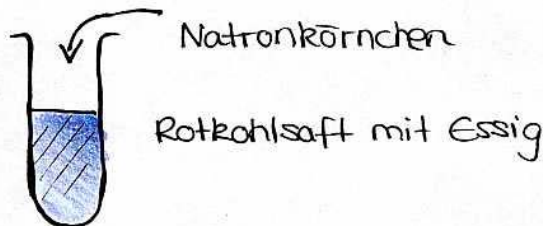 Natronkörnchen
Rotkohlsaft mit Essig